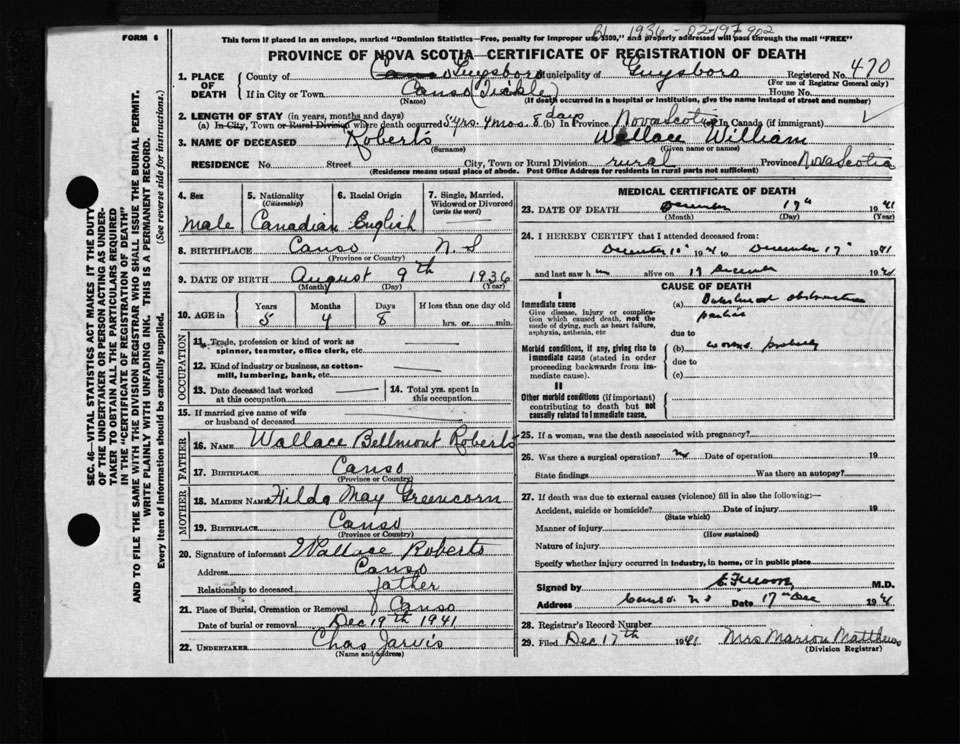 FORM 6
This form if placed in an envelope, marked "Dominion Statistics—Free, penalty for improper use $300," and properly addressed will pass through the mail "FREE"
1936-02-197902
PROVINCE OF NOVA SCOTIA—CERTIFICATE OF REGISTRATION OF DEATH
1. PLACE OF DEATH
County of Canso Guysboro Municipality of Guysboro Registered No. 470
(For use of Registrar General only)
If in City or Town Canso (Tickle) House No.
(Name) (If death occurred in a hospital or institution, give the name instead of street and number)
2. LENGTH OF STAY (in years, months and days)
(a) In City, Town or Rural Division where death occurred 5 yrs. 4 mos. 8 days (b) In Province Nova Scotia In Canada (if immigrant)
3. NAME OF DECEASED Roberts Wallace William
(Surname) (Given name or names)
RESIDENCE No. Street City, Town or Rural Division rural Province Nova Scotia
(Residence means usual place of abode. Post Office Address for residents in rural parts not sufficient)
4. Sex
male
5. Nationality
(Citizenship)
Canadian
6. Racial Origin
English
7. Single, Married, Widowed or Divorced
(write the word)
8. BIRTHPLACE Canso N. S
(Province or Country)
9. DATE OF BIRTH August 9th 1936
(Month) (Day) (Year)
10. AGE in
Years 5
Months 4
Days 8
If less than one day old
hrs. or min.
OCCUPATION
11. Trade, profession or kind of work as
spinner, teamster, office clerk, etc.
12. Kind of industry or business, as cotton-
mill, lumbering, bank, etc.
13. Date deceased last worked
at this occupation
14. Total yrs. spent in
this occupation
15. If married give name of wife
or husband of deceased
FATHER
16. NAME Wallace Bellmont Roberts
17. BIRTHPLACE Canso
(Province or Country)
MOTHER
18. MAIDEN NAME Hilda May Greencorn
19. BIRTHPLACE Canso
(Province or Country)
20. Signature of informant Wallace Roberts
Address Canso
Relationship to deceased father
21. Place of Burial, Cremation or Removal Canso
Date of burial or removal Dec 19th 1941
22. UNDERTAKER Chas Jarvis
(Name and address)
MEDICAL CERTIFICATE OF DEATH
23. DATE OF DEATH December 17th 1941
(Month) (Day) (Year)
24. I HEREBY CERTIFY that I attended deceased from:
December 10" 1941 to December 17" 1941
and last saw him alive on 17 December 1941
CAUSE OF DEATH
I
Immediate cause
Give disease, injury or complica-
tion which caused death, not the
mode of dying, such as heart failure,
asphyxia, asthenia, etc
(a) obstruction
due to
Morbid conditions, if any, giving rise to
immediate cause (stated in order
proceeding backwards from im-
mediate cause).
(b) worms probably
due to
(c)
II
Other morbid conditions (if important)
contributing to death but not
causally related to immediate cause.
25. If a woman, was the death associated with pregnancy?
26. Was there a surgical operation? no Date of operation 19
State findings Was there an autopsy?
27. If death was due to external causes (violence) fill in also the following:—
Accident, suicide or homicide? Date of injury 19
(State which)
Manner of injury
(How sustained)
Nature of injury
Specify whether injury occurred in industry, in home, or in public place
Signed by M.D.
Address Canso N S Date 17th Dec 1941
28. Registrar's Record Number
29. Filed Dec 17th 1941 Mrs Marion Matthews
(Division Registrar)
SEC. 46—VITAL STATISTICS ACT MAKES IT THE DUTY
OF THE UNDERTAKER OR PERSON ACTING AS UNDER-
TAKER TO OBTAIN ALL THE PARTICULARS REQUIRED
IN THE "CERTIFICATE OF REGISTRATION OF DEATH"
AND TO FILE THE SAME WITH THE DIVISION REGISTRAR WHO SHALL ISSUE THE BURIAL PERMIT.
WRITE PLAINLY WITH UNFADING INK. THIS IS A PERMANENT RECORD.
Every item of information should be carefully supplied. (See reverse side for instructions.)